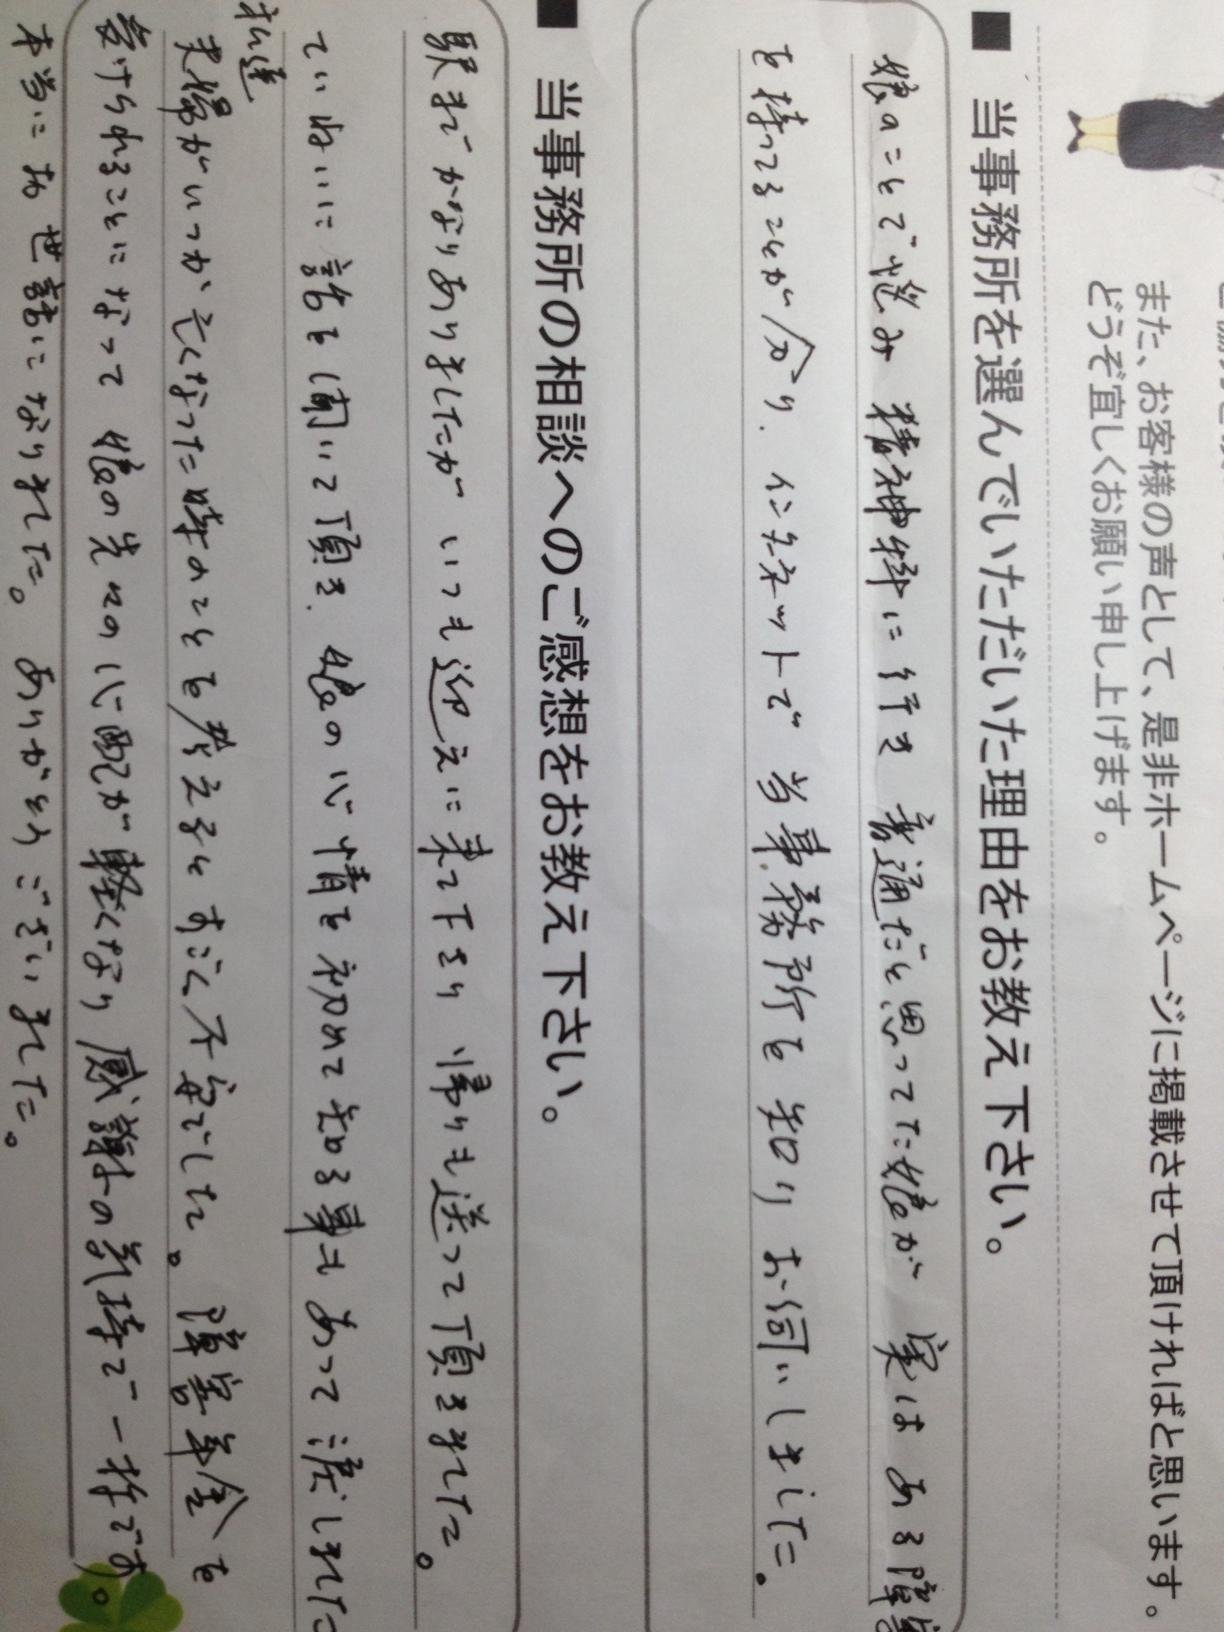 また、お客様の声として、是非ホームページに掲載させて頂ければと思います。
どうぞ宜しくお願い申し上げます。
■ 当事務所を選んでいただいた理由をお教え下さい。
娘のことで悩み 精神科に行き 普通だと思ってた娘が 実は ある障害
を持ってることが分り、インターネットで 当事務所を知り お伺いしました。
■ 当事務所の相談へのご感想をお教え下さい。
駅までかなりありましたが いつも迎えに来て下さり 帰りも送って頂きました。
ていねいに話を聞いて頂き、娘の心情を初めて知る事もあって涙しました
私達
夫婦がいつか亡くなった時のことを考えると すごく不安でした。障害年金を
受けられることになって 娘の先々の心配が軽くなり 感謝の気持で一杯です。
本当にお世話になりました。ありがとうございました。